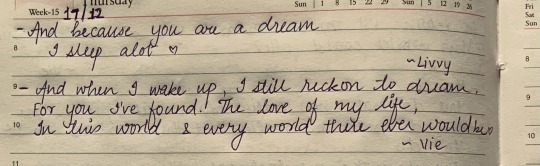 Thursday
Week-15 17/12
Sun 1 8 15 22 29 Sun 5 12 19 26
Fri
Sat
Sun
- And because you are a dream
8 I sleep alot ♡
~Livvy
8
9 - And when I wake up, I still reckon to dream,
For you I've found. The love of my life,
9
10 In this world & every world there ever would be
~ Vie
10
11